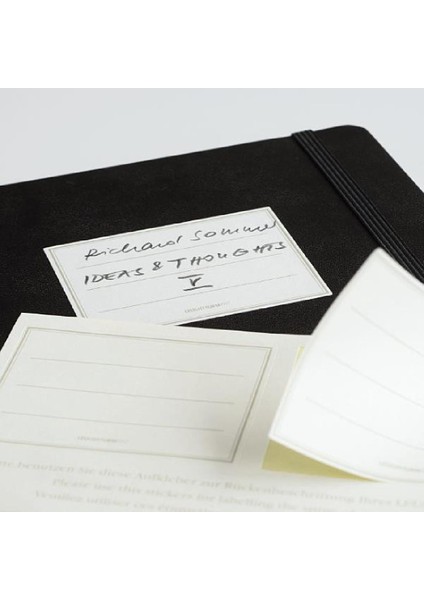 Richard Sommer
IDEAS & THOUGHTS
V
benutzen Sie diese Aufkleber zur Rückenbeschriftung Ihres
Please use this stickers for labelling the
Veuillez utiliser ces